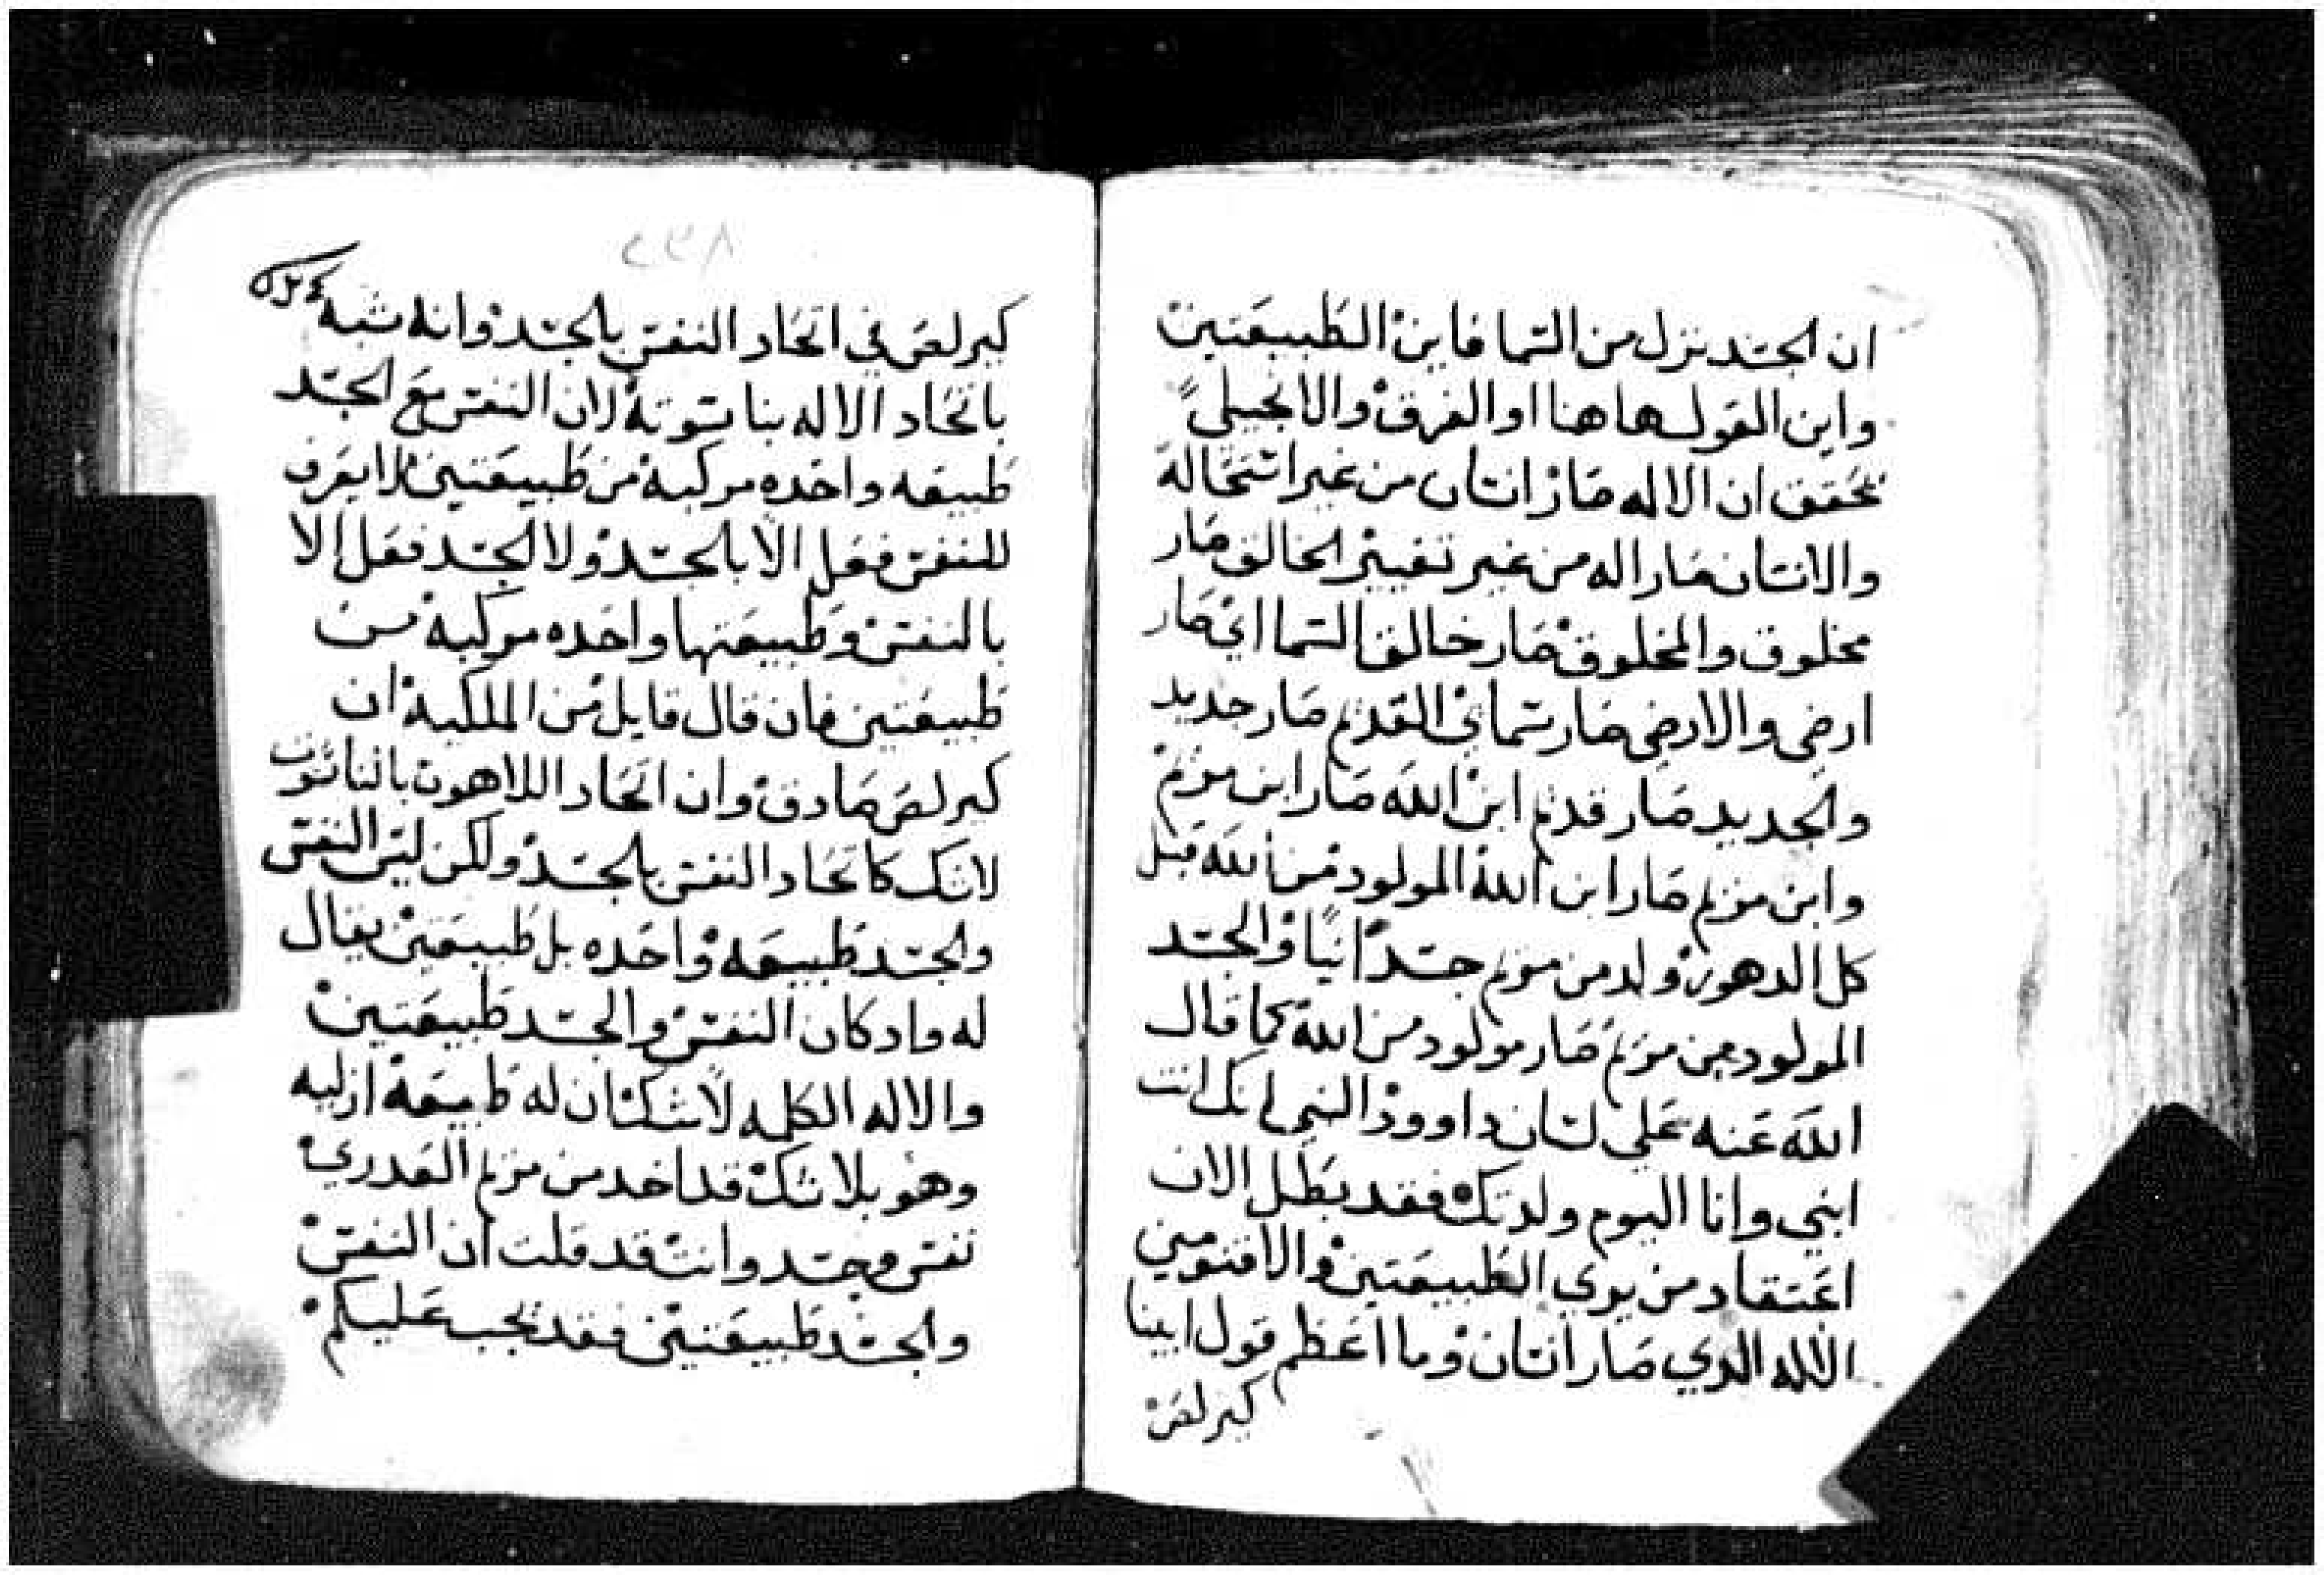 ان الجسد نزل من السما فاين الطبيعتين
واين القول هاهنا او الفرق والانجيلي
تحقق ان الاله صار انسان من غير استحالة
والانسان صار اله من غير تغيير الخالق صار
مخلوق والمخلوق صار خالق السما اي صار
ارضي والارضي صار سماي القديم صار جديد
والجديد صار قديم ابن الله صار ابن مريم
وابن مريم صار ابن الله المولود من الله قبل
كل الدهور ولد من مريم جسدانيا والجسد
المولود من مريم صار مولود من الله كما قال
الله عنه علي لسان داوود النبي انك انت
ابني وانا اليوم ولدتك فقد بطل الان
اعتقاد من يري الطبيعتين والاقنومين
الاله الدي صار انسان وما اعظم قول ابينا
كيرلص
٢٣٨
٥٢٤
كيرلص في اتحاد النفس بالجسد وانه شبه
باتحاد الاله بناسوته لان النفس مع الجسد
طبيعه واحده مركبة من طبيعتين لا يعرف
للنفس فعل الا بالجسد ولا الجسد فعل الا
بالنفس وطبيعتها واحده مركبة من
طبيعتين فان قال قايل من الملكية ان
كيرلص صادق وان اتحاد اللاهوت بالناسوت
لانك كاتحاد النفس بالجسد ولكن ليس النفس
والجسد طبيعه واحده بل طبيعتين يقال
له واد كان النفس والجسد طبيعتين
والاله الكلمه لا شك ان له طبيعة ازليه
وهو بلا شك قد اخد من مريم العدري
نفس وجسد وانت قد قلت ان النفس
والجسد طبيعتين فقد تجب عليكم